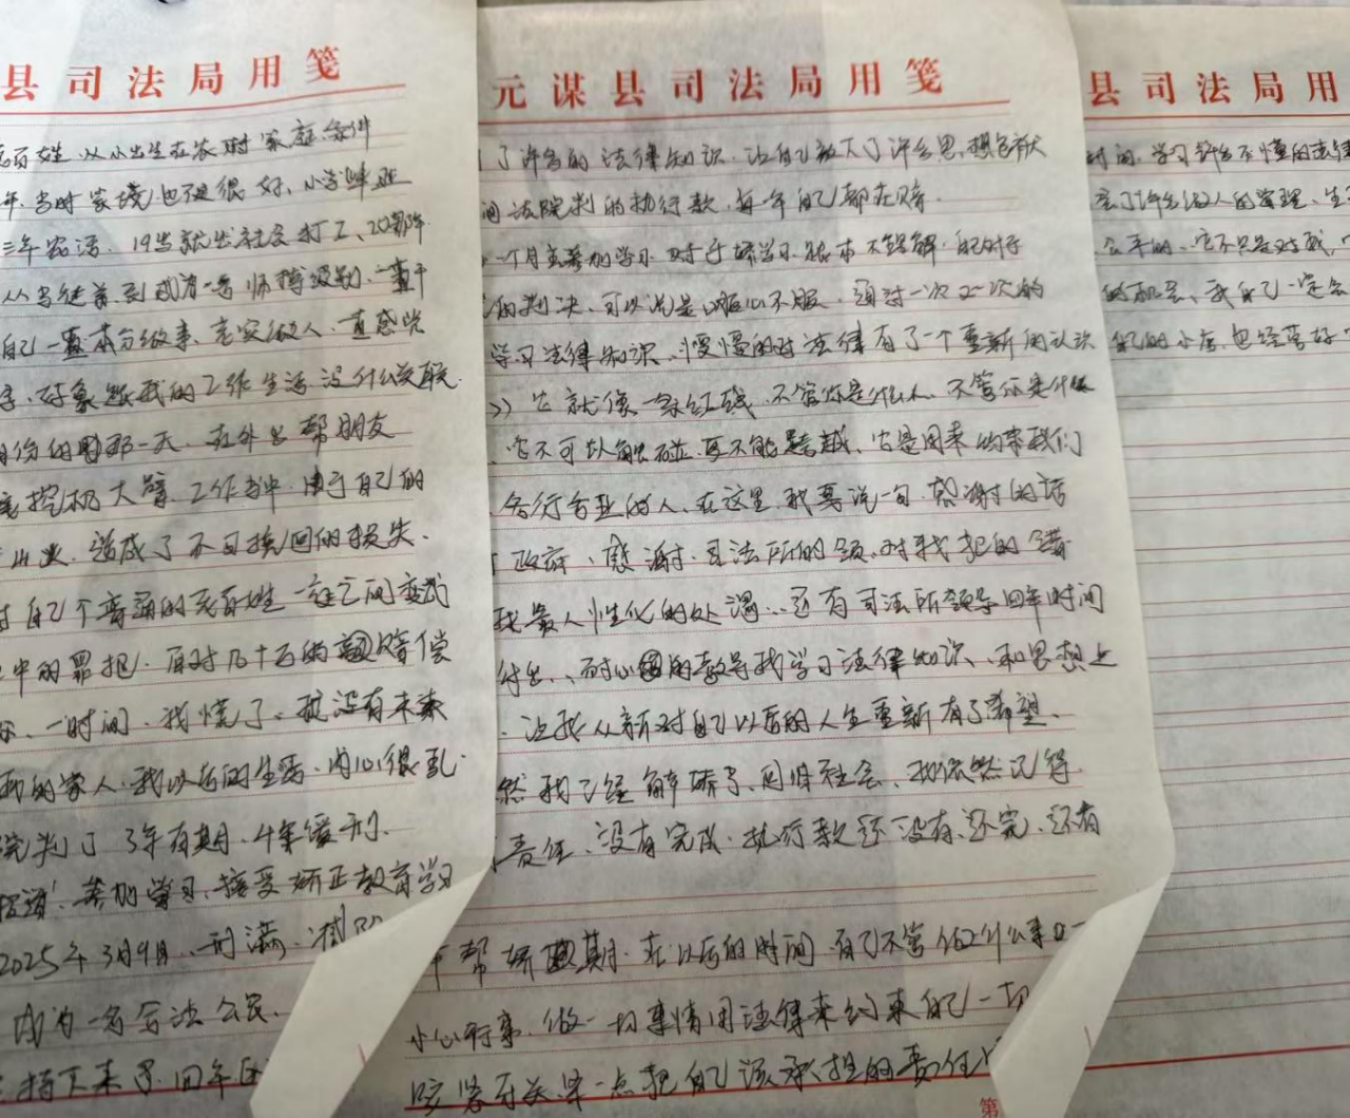 县司法局用笺
百姓 从小出生在农村 家庭条件
年.当时家境也不是很好、小学毕业
三年农活.19岁就出社会打工、20那年
从当徒弟到成为一名师傅级别.一直干
自己一直本分做事、老实做人.一直感觉
好象跟我的工作生活没什么关联.
份的那一天.在外出帮朋友
挖机大臂.工作当中.由于自己的
造成了不可挽回的损失.
自己个普通的老百姓一夜之间变成
中的罪犯.面对几十万的赔偿
一时间.我慌了。我没有未来
我的家人.我以后的生活.内心很乱.
院判了3年有期.4年缓刑.
参加学习、接受矫正教育学习
2025年3月9日、刑满.
成为一名守法公民.
持下来了.四年
元谋县司法局用笺
了许多的法律知识.让自己放下了许多思想包袱
法院判的执行款.每年自己都在赔.
一个月去参加学习.对于矫学习.根本不理解.自己对于
的判决.可以说是口服心不服.通过一次又一次的
学习法律知识.慢慢的对法律有了一个重新的认识
它就像一条红线.不管你是什么人.不管你是什么
它不可以触碰.更不能跨越、它是用来约束我们
各行各业的人、在这里.我要说一句.感谢的话
政府、感谢.司法所的领.对我犯的错
我最人性化的处遇...还有司法所领导四年时间
付出、、耐心的教导我学习法律知识、和思想上
.让我从新对自己以后的人生重新有了希望、
然我已经解矫了、回归社会、我依然记得
责任、没有完成.执行款还没有、还完、还有
帮矫期.在以后的时间.自己不管做什么事
小心行事.做一切事情用法律来约束自己一切
咬紧牙关.早一点把自己该承担的责任
第
县司法局用
时间.学习许多不懂的法律
了许多做人的道理、生
公平的、它不只是对我、
的机会、我自己一定会
自己的小店.也经营好